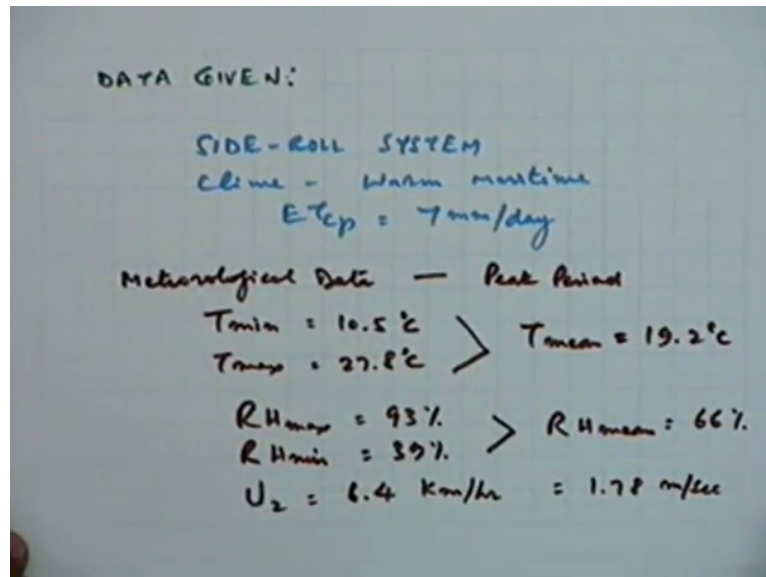 DATA GIVEN:
SIDE-ROLL SYSTEM
Clime - Warm maritime
ETcp = 7 mm/day
Meteorological Data — Peak Period
Tmin = 10.5°C
Tmax = 27.8°C > Tmean = 19.2°C
RHmax = 93%
RHmin = 39% > RHmean = 66%
U2 = 6.4 Km/hr = 1.78 m/sec